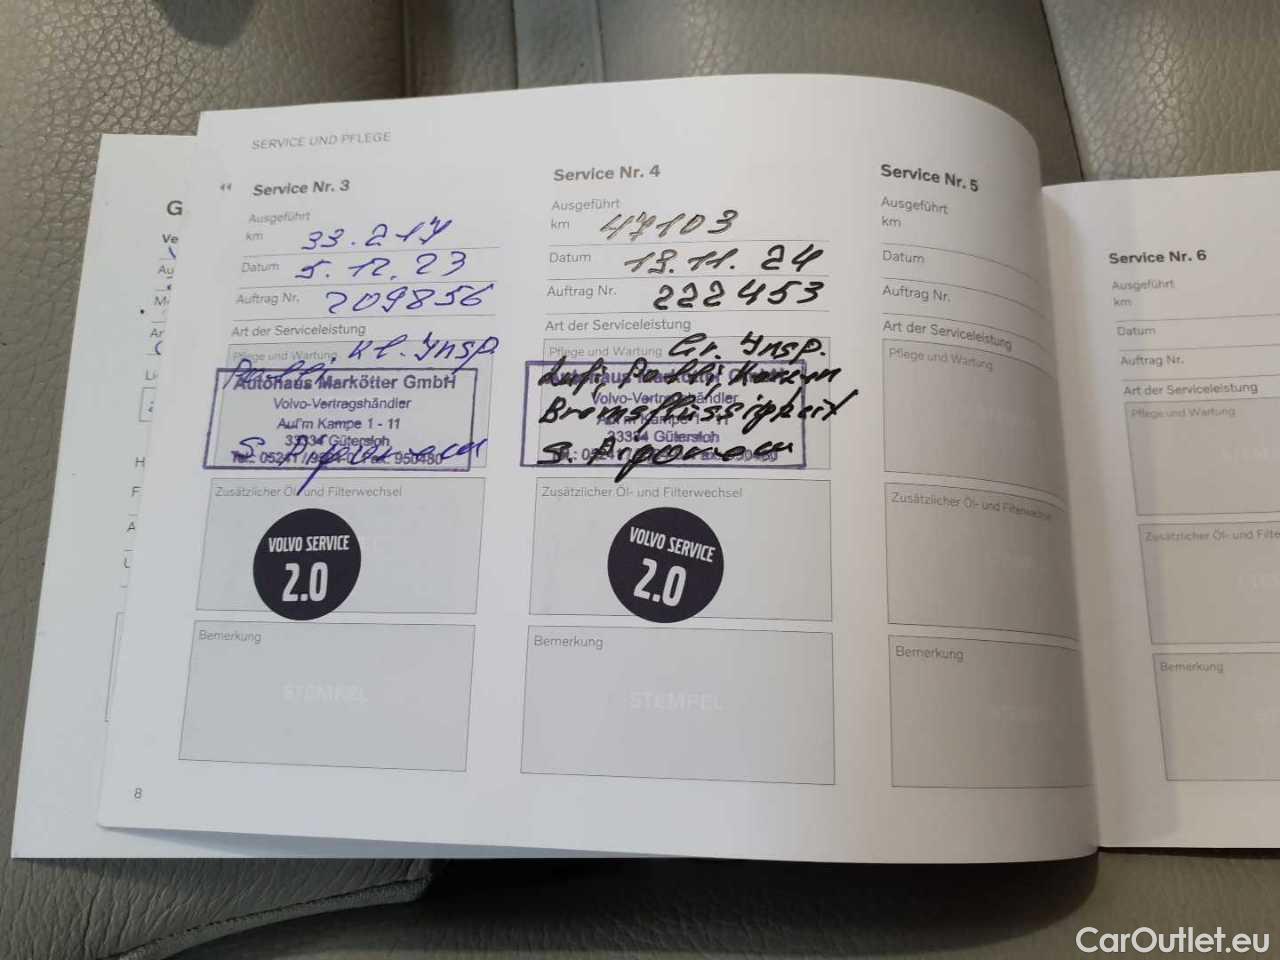 SERVICE UND PFLEGE
Service Nr. 3
Ausgeführt
km 33.217
Datum 5.12.23
Auftrag Nr. 209856
Art der Serviceleistung
Pflege und Wartung Kl. Insp.
Autohaus Markötter GmbH
Volvo-Vertragshändler
Auf'm Kampe 1 - 11
33334 Gütersloh
Zusätzlicher Öl- und Filterwechsel
VOLVO SERVICE
2.0
Bemerkung
STEMPEL
8
Service Nr. 4
Ausgeführt
km 47103
Datum 13.11.24
Auftrag Nr. 222453
Art der Serviceleistung
Pflege und Wartung Gr. Insp.
Bremsflüssigkeit
Volvo-Vertragshändler
Auf'm Kampe 1 - 11
33334 Gütersloh
Zusätzlicher Öl- und Filterwechsel
VOLVO SERVICE
2.0
Bemerkung
STEMPEL
Service Nr. 5
Ausgeführt
km
Datum
Auftrag Nr.
Art der Serviceleistung
Pflege und Wartung
Zusätzlicher Öl- und Filterwechsel
Bemerkung
Service Nr. 6
Ausgeführt
km
Datum
Auftrag Nr.
Art der Serviceleistung
Pflege und Wartung
Zusätzlicher Öl- und Filte
Bemerkung
CarOutlet.eu